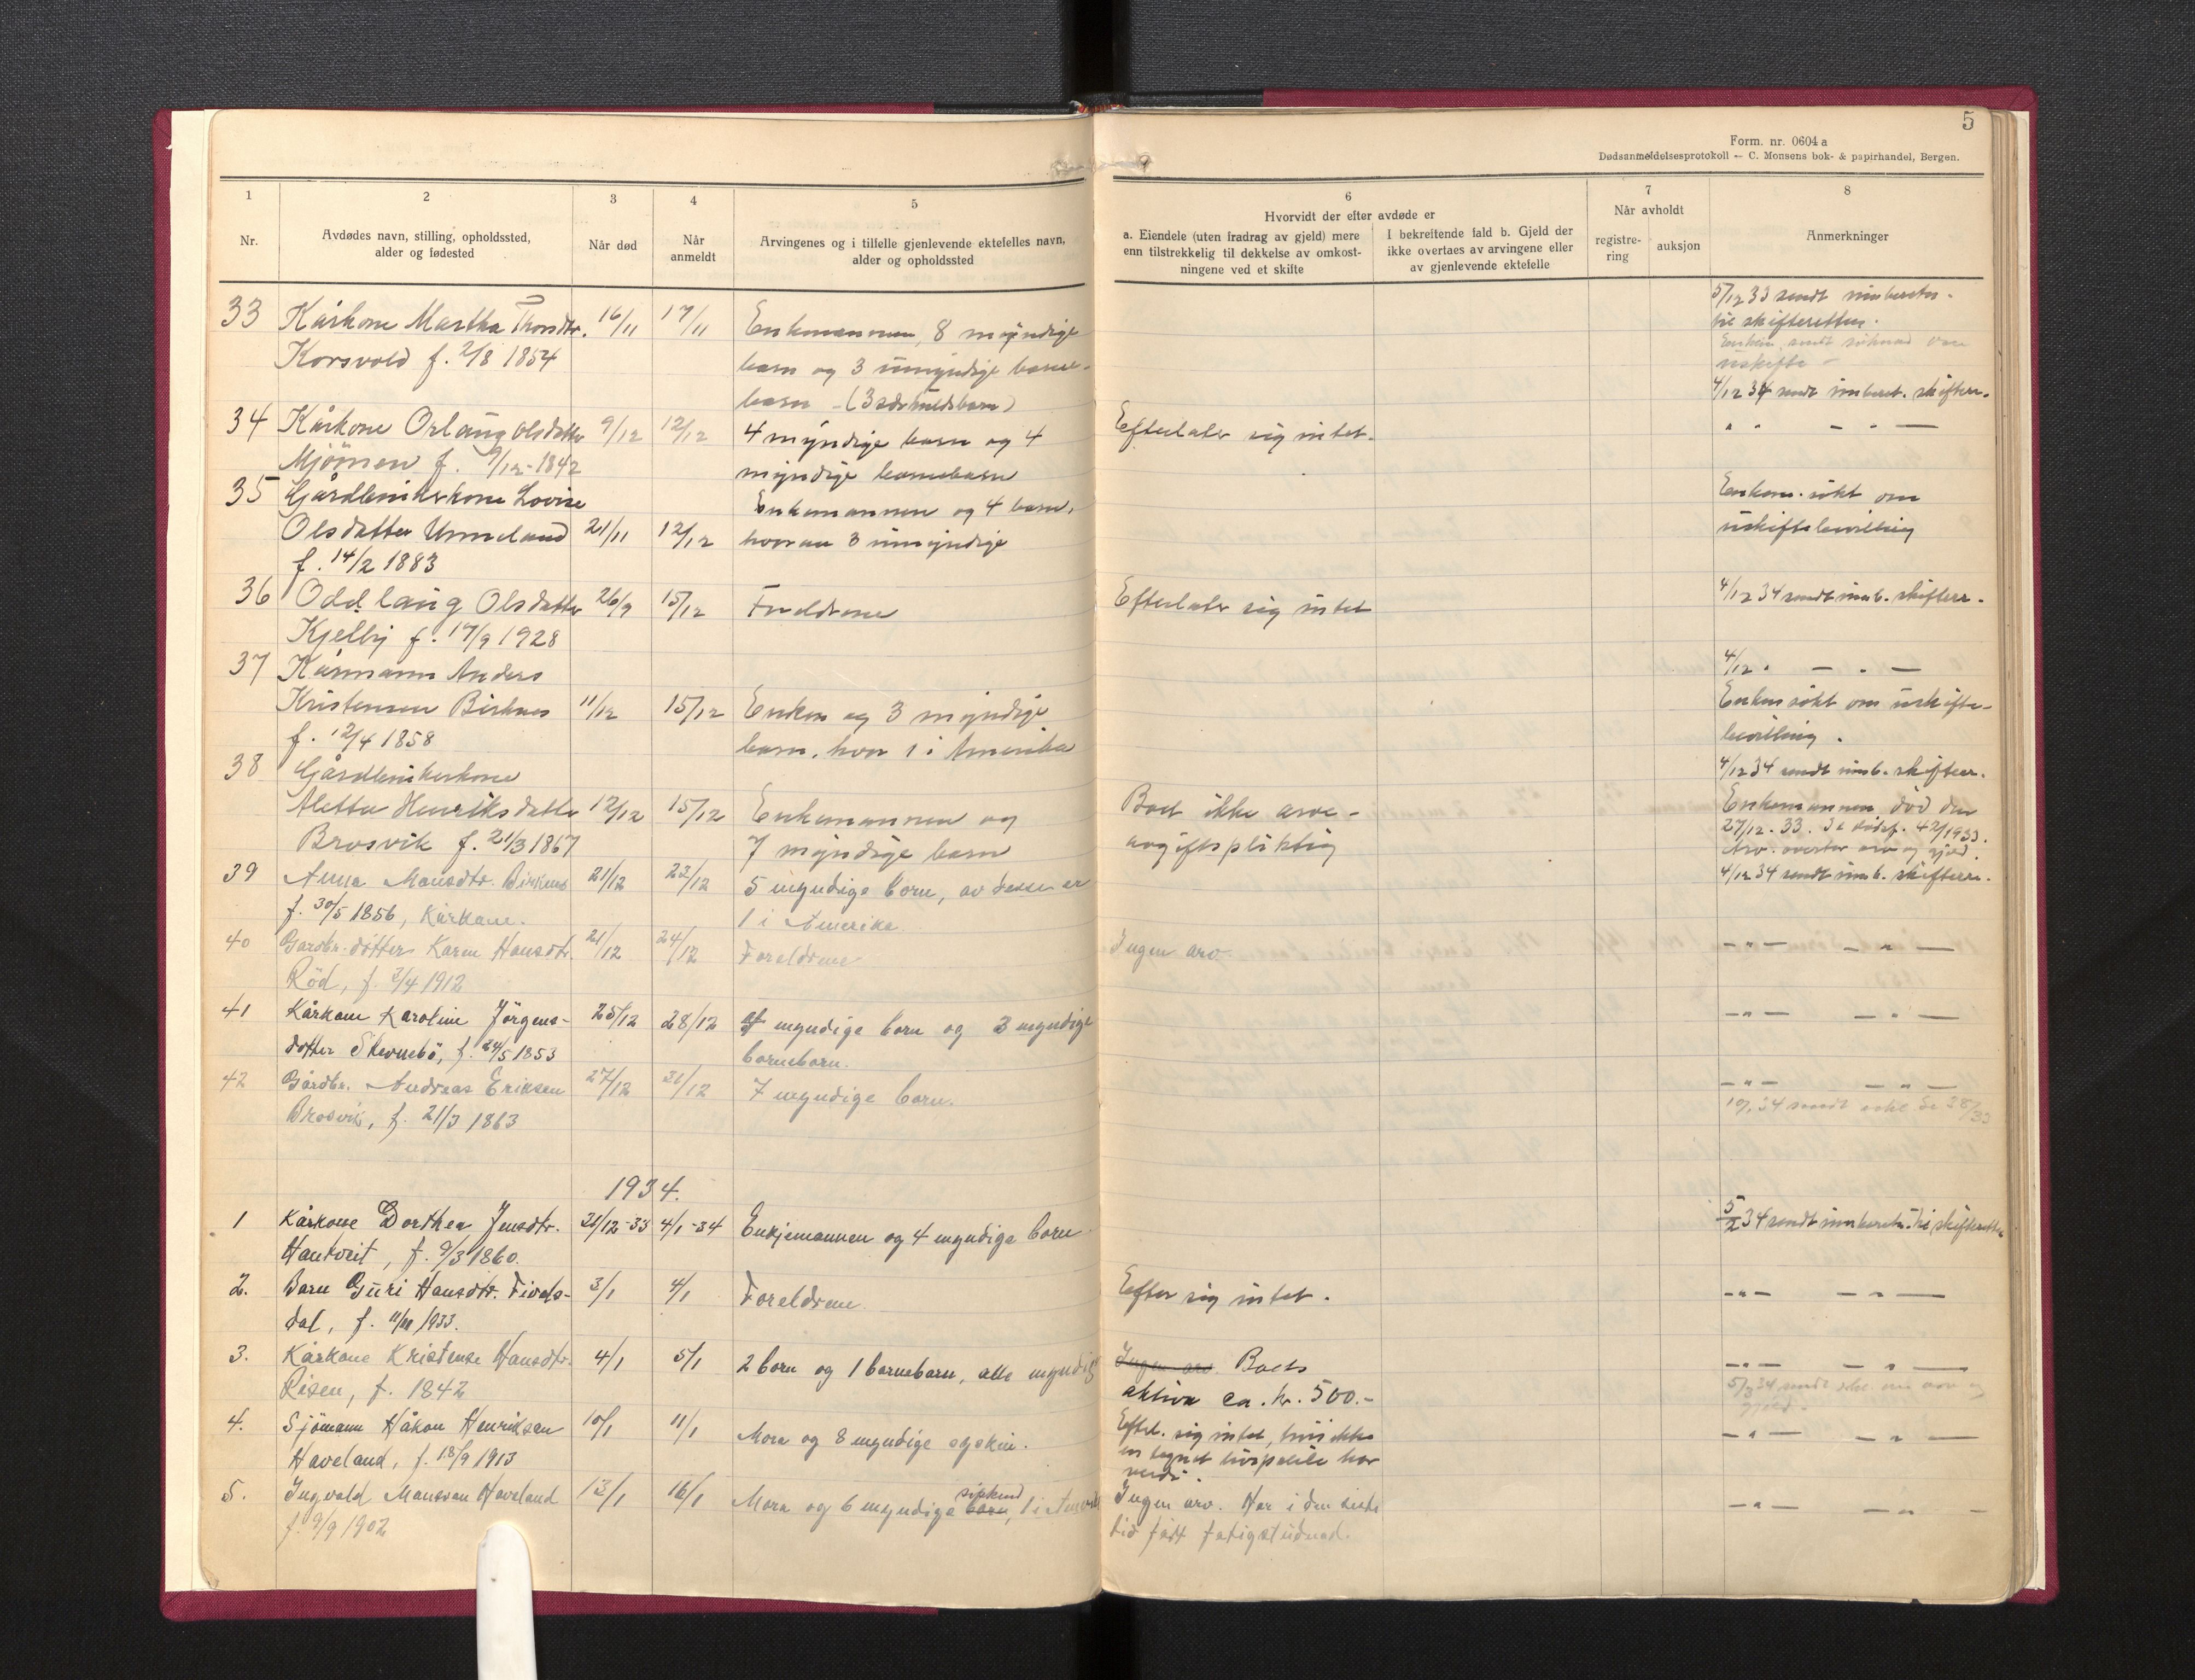 5
Form. nr. 0604 a
Dødsanmeldelsesprotokoll — C. Monsens bok- & papirhandel, Bergen.
1 2 3 4 5 6 7 8
Nr.
Avdødes navn, stilling, opholdssted,
alder og fødested
Når død
Når
anmeldt
Arvingenes og i tilfelle gjenlevende ektefelles navn,
alder og opholdssted
Hvorvidt der efter avdøde er
a. Eiendele (uten fradrag av gjeld) mere
enn tilstrekkelig til dekkelse av omkost-
ningene ved et skifte
I bekreftende fald b. Gjeld der
ikke overtaes av arvingene eller
av gjenlevende ektefelle
Når avholdt
registre-
ring
auksjon
Anmerkninger
33 Kårkone Martha Thorsdtr. 16/11 17/11 Enkemannen, 8 myndige
Korsvold f. 2/8 1854 barn og 3 umyndige barne-
barn
5/12 33 sendt innberetn.
til skifteretten.
uskifte
4/12 34 sendt innberet. skifterr.
34 Kårkone Orlaug Olsdatter 9/12 12/12 4 myndige barn og 4 Efterlater sig intet. " " — " —
Mjømen f. 9/12-1842 myndige barnebarn
35 Gårdbrukerkone Lovise Enkemannen og 4 barn, Enkem. søkt om
Olsdatter Unneland 21/11 12/12 hvorav 3 umyndige uskiftebevilling
f. 14/2 1883
36 Oddlaug Olsdatter 26/9 15/12 Foreldrene Efterlater sig intet 4/12 34 sendt innb. skifterr.
Kjelby f. 17/9 1928
37 Kårmann Anders 4/12 " — " —
Kristensen Birknes 11/12 15/12 Enken og 3 myndige Enken søkt om uskifte-
f. 12/4 1858 barn, hvor 1 i Amerika bevilling.
38 Gårdbrukerkone 4/12 34 sendt innb. skifterr.
Aletta Henriksdatter 12/12 15/12 Enkemannen og Boet ikke arve- Enkemannen død den
Brosvik f. 21/3 1867 7 myndige barn avgiftspliktig 27/12. 33. Se dødsf. 42/1933.
Arv. overtar arv og gjeld.
39 Anna Monsdtr. Birknes 21/12 22/12 5 myndige born, av desse er 4/12 34 sendt innb. skifterr.
f. 30/5 1856, Kårkone. 1 i Amerika.
40 Gardbr.-dotter Karen Hansdtr. 21/12 24/12 Foreldrene Ingen arv — " — — " —
Röd, f. 3/4 1912
41 Kårkone Karoline Jörgens- 25/12 28/12 myndige born og 3 myndige — " — — " —
dotter Skevnebö, f. 24/5 1853 barneborn.
42 Gårdbr. Andreas Eriksen 27/12 31/12 7 myndige born. — " — — " —
Brosvik, f. 21/3 1863 34 sendt se 38/33
1934.
1 Kårkone Dorthea Jensdtr. 31/12-33 4/1-34 Enkjemannen og 4 myndige born 5/2 34 sendt innberetn. til skifteretten
Hantveit, f. 9/3 1860.
2. Barn Guri Hansdtr. Fivels- 3/1 4/1 Foreldrene. Efter sig intet. — " — — " —
dal, f. 1933.
3. Kårkone Kristense Hansdtr. 4/1 5/1 2 born og 1 barneborn, alle myndige Ingen arv. Boets — " — — " —
Risen, f. 1842 aktiva ca. kr. 500.- 5/3 34 sendt om arv og
gjeld.
4. Sjömann Håkon Henriksen 10/1 11/1 Mora og 8 myndige sysken. Efterl. sig intet, hvis ikke — " — — " —
Haveland, f. 18/9 1913 en tegnet livspolise har
verdi.
5. Ingvald Monsson Haveland 13/1 16/1 Mora og 6 myndige born söskend, 1 i Amerika Ingen arv. Har i den siste — " — — " —
f. 9/9 1902 tid fått fatigstudnad.